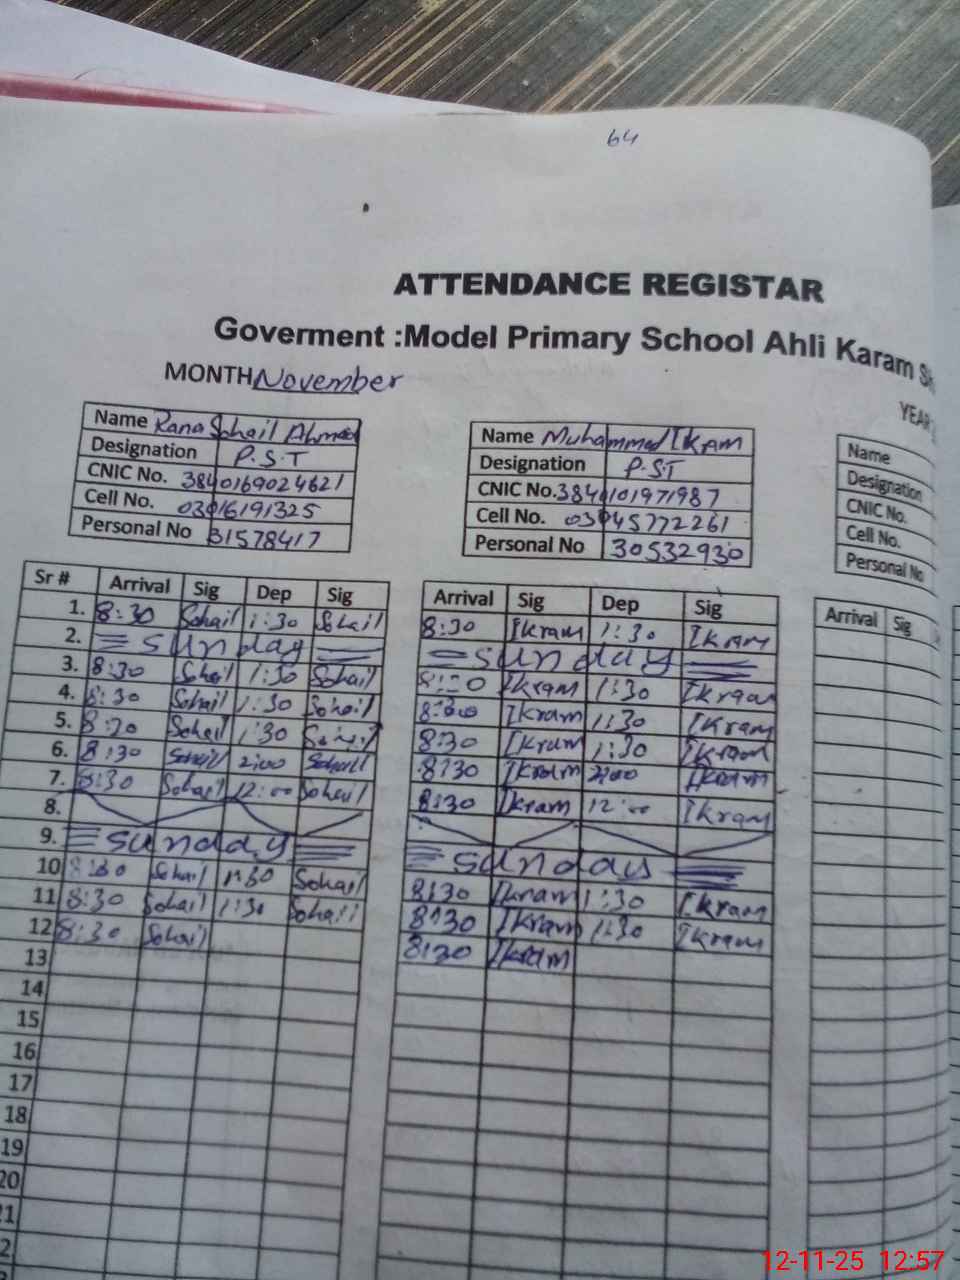 64
ATTENDANCE REGISTAR
Goverment :Model Primary School Ahli Karam
MONTH November
YEAR
Name Rana Sohail Ahmad
Designation P.S.T
CNIC No. 3840169024621
Cell No. 03016191325
Personal No 31578417
Name Muhammad IKRAM
Designation P.S.T
CNIC No. 3840101971987
Cell No. 03045772261
Personal No 30532930
Name
Designation
CNIC No.
Cell No.
Personal No
Sr # Arrival Sig Dep Sig Arrival Sig Dep Sig Arrival Sig
1. 8:30 Sohail 1:30 Sohail 8:30 Ikram 1:30 IKRAM
2. Sunday Sunday
3. 8:30 Sohail 1:30 Sohail 8:30 Ikram 1:30 Ikram
4. 8:30 Sohail 1:30 Sohail Ikram 1:30 Ikram
5. 8:30 Sohail 1:30 Sohail 8:30 Ikram 1:30 Ikram
6. 8:30 Sohail 2:00 Sohail 8:30 Ikram 2:00 Ikram
7. 8:30 Sohail 12:00 Sohail 8:30 Ikram 12:00 Ikram
8.
9. Sunday Sunday
10 8:30 Sohail 1:30 Sohail 8:30 Ikram 1:30 Ikram
11 8:30 Sohail 1:30 Sohail 8:30 Ikram 1:30 Ikram
12 8:30 Sohail 8:30 Ikram
13
14
15
16
17
18
19
20
12-11-25 12:57